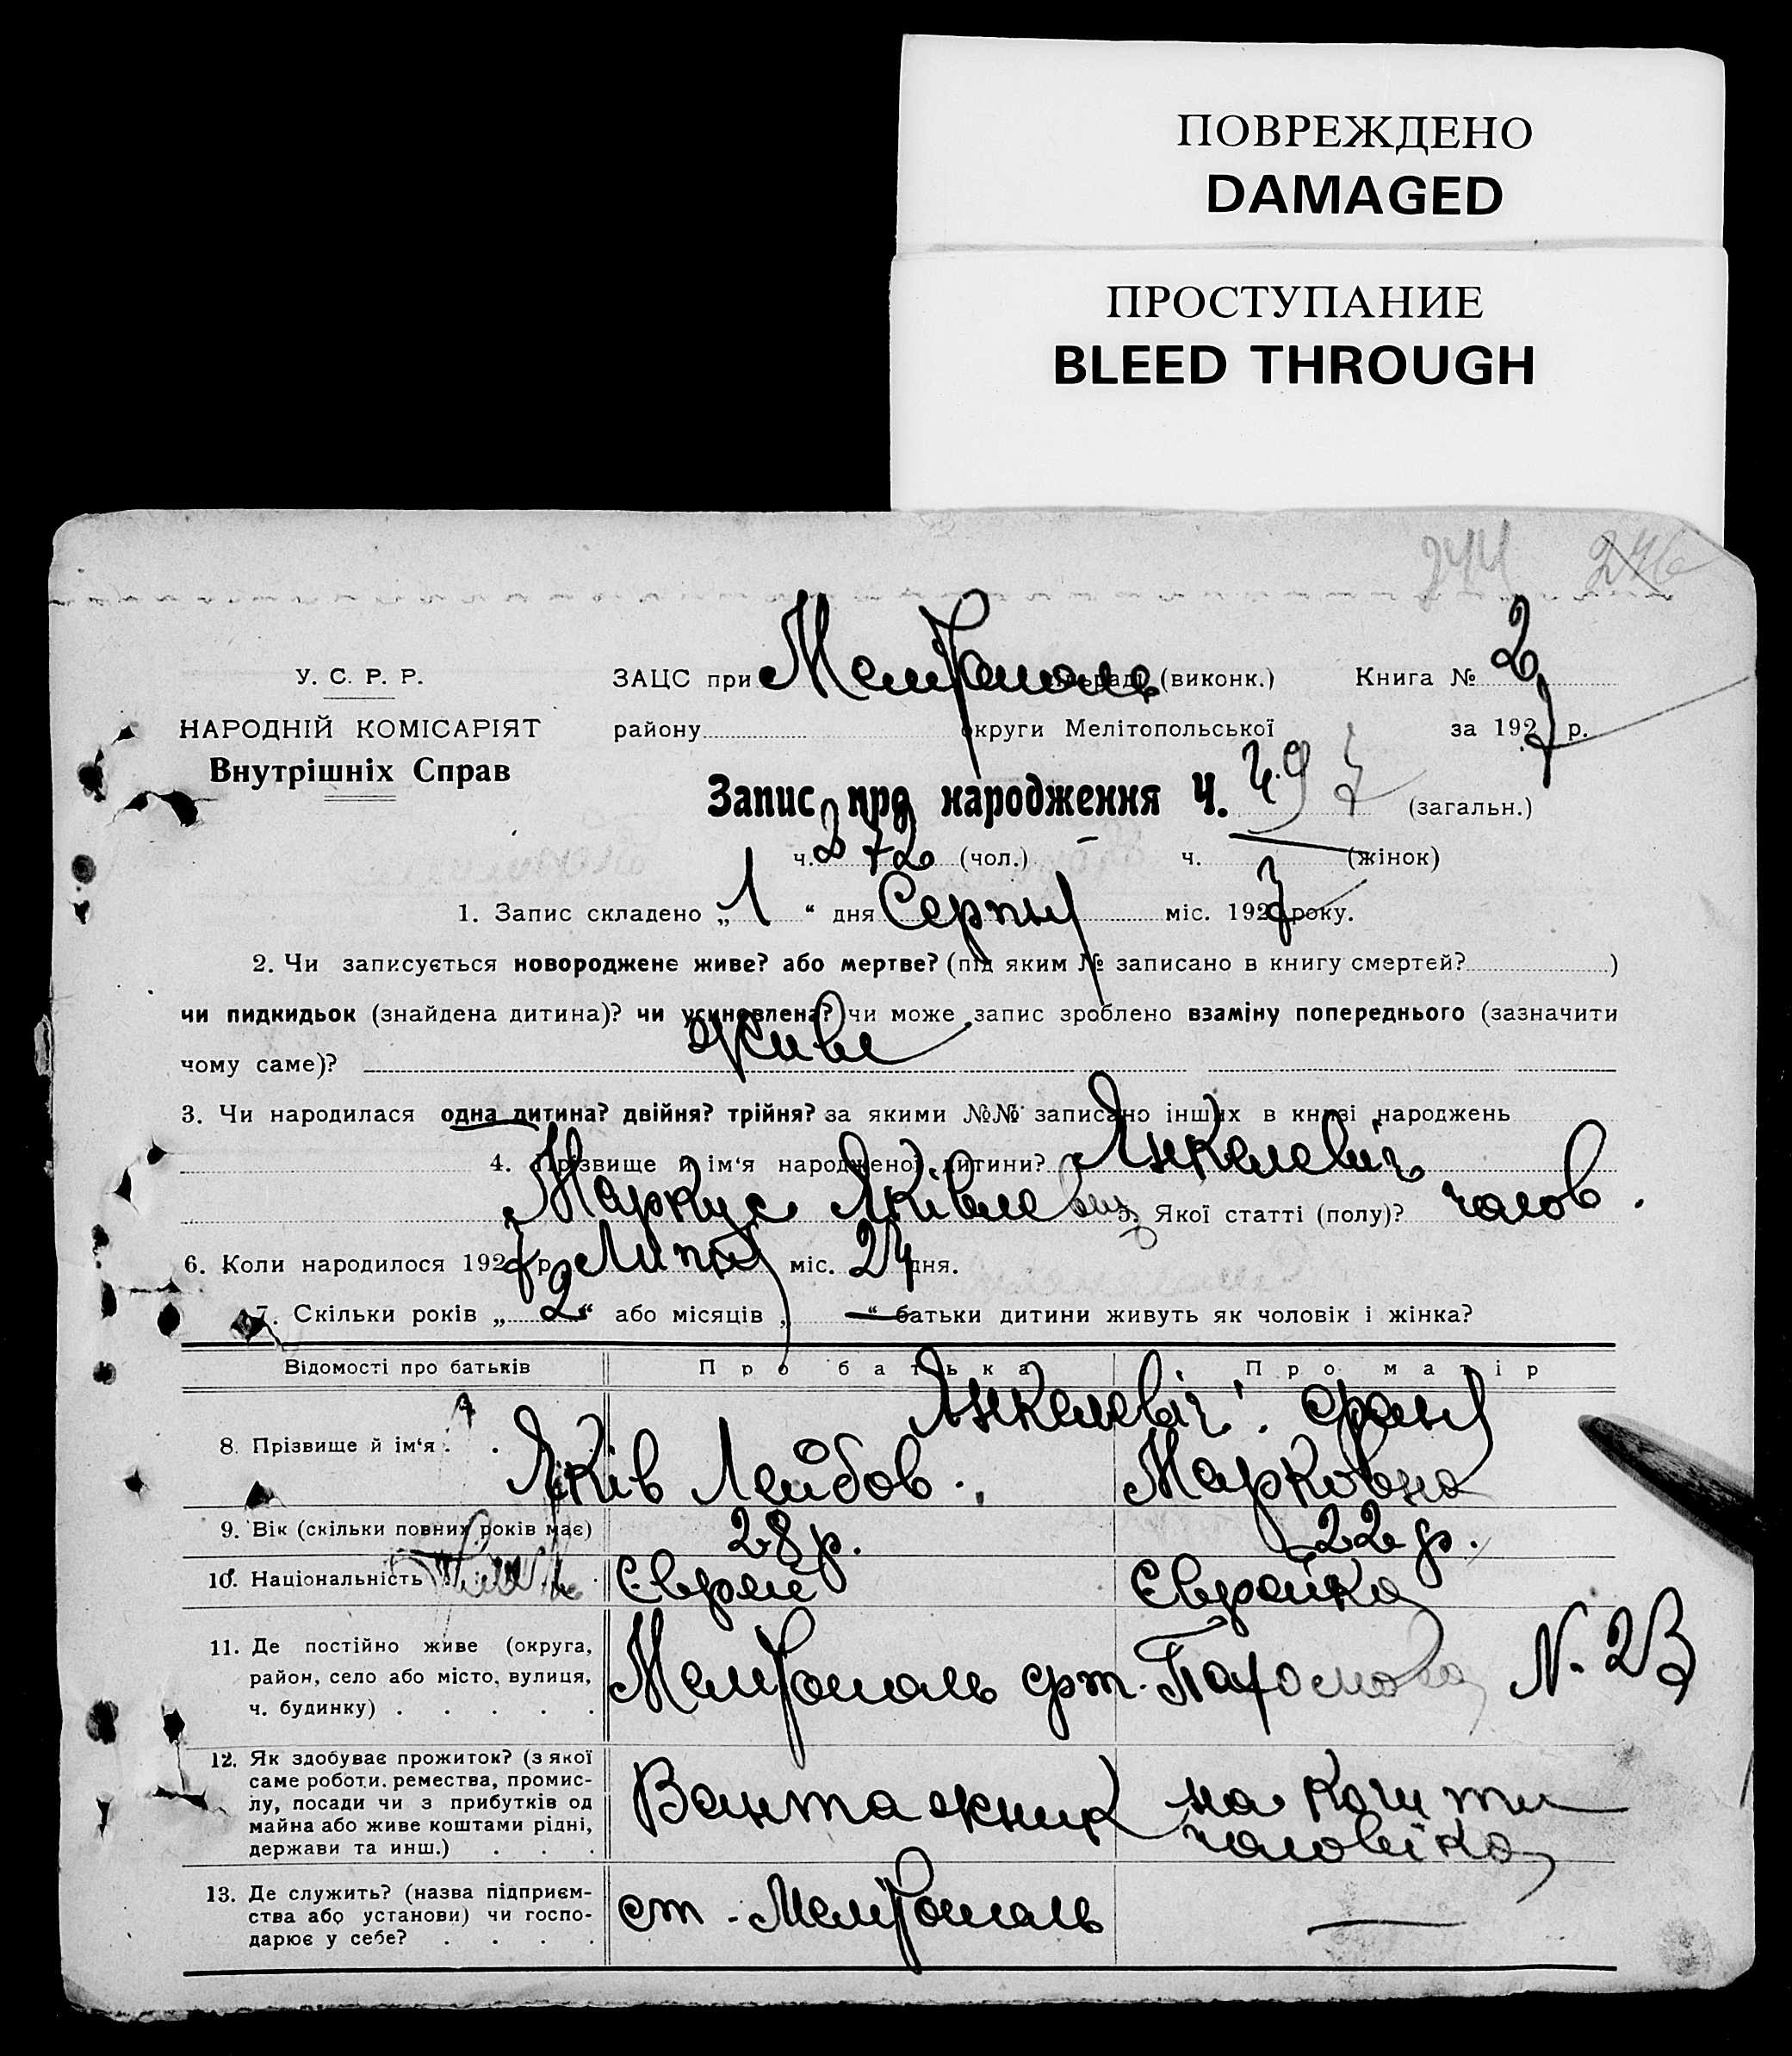 ПОВРЕЖДЕНО
DAMAGED
ПРОСТУПАНИЕ
BLEED THROUGH
244 246
У. С. Р. Р. ЗАЦС при Мелітополь (виконк.) Книга № 2
НАРОДНІЙ КОМІСАРІЯТ району округи Мелітопольської за 1927 р.
Внутрішніх Справ
Запис про народження Ч. 497 (загальн.)
ч. 272 (чол.) ч. — (жінок)
1. Запис складено „1“ дня Серпня міс. 1927 року.
2. Чи записується новороджене живе? або мертве? (під яким № записано в книгу смертей? )
чи пидкидьок (знайдена дитина)? чи усиновлена? чи може запис зроблено взаміну попереднього (зазначити
чому саме)? живе
3. Чи народилася одна дитина? двійня? трійня? за якими №№ записано інших в книзі народжень
4. Прізвище й ім‘я народженої дитини? Янкелевіч
Маркус Яківлевич 5. Якої статті (полу)? чолов.
6. Коли народилося 1927 р. Липня міс. 24 дня.
7. Скільки років „2“ або місяців „—“ батьки дитини живуть як чоловік і жінка?
Відомості про батьків Про батька Про матір
8. Прізвище й ім‘я . . . Янкелевіч: Фаня
Яків Лейбов. Марковна
9. Вік (скільки повних років має) 28 р. 22 р.
10. Національність . . . Єврей Єврейка
11. Де постійно живе (округа,
район, село або місто, вулиця,
ч. будинку) . . . . . Мелітополь N. 23
12. Як здобуває прожиток? (з якої
саме роботи. ремества, промис-
лу, посади чи з прибутків од
майна або живе коштами рідні,
держави та инш.) . . . Вантажник на кошти
чоловіка
13. Де служить? (назва підприєм-
ства або установи) чи госпо-
дарює у себе? . . . . ст. Мелітополь —